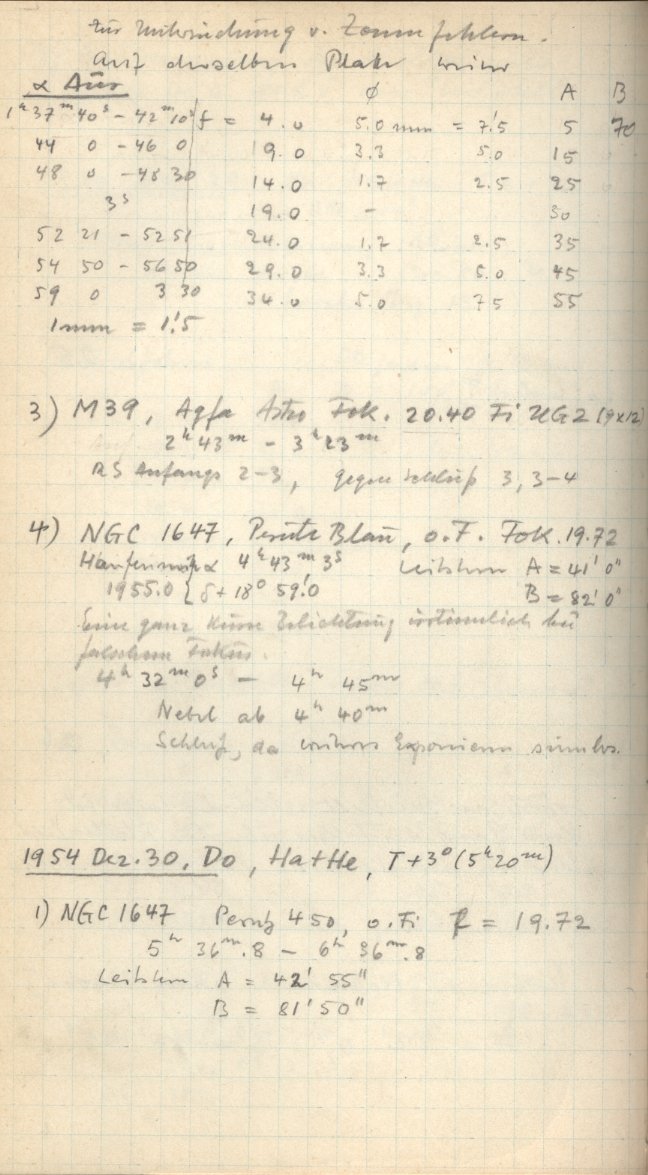 zur Untersuchung v. Zonenfehlern.
Auf derselben Platte weiter
α Aur ϕ A B
1ʰ 37ᵐ 40ˢ - 42ᵐ 10ˢ f = 4.0 5.0 mm = 7.'5 5 70
44 0 - 46 0 19.0 3.3 5.0 15
48 0 - 48 30 14.0 1.7 2.5 25
3ˢ 19.0 - 30
52 21 - 52 51 24.0 1.7 2.5 35
54 50 - 56 50 29.0 3.3 5.0 45
59 0 3 30 34.0 5.0 7.5 55
1 mm = 1.'5
3) M39, Agfa Astro Fok. 20.40 Fi UG2 (9x12)
2ʰ 43ᵐ - 3ʰ 23ᵐ
Anfangs 2-3, gegen Schluß 3, 3-4
4) NGC 1647, Perutz Blau, o.F. Fok. 19.72
Haufenmitte α 4ʰ 43ᵐ 3ˢ Leitstern A = 41' 0"
1955.0 { δ + 18° 59.'0 B = 82' 0"
Eine ganz kurze Belichtung irrtümlich bei
falschem Fokus.
4ʰ 32ᵐ 0ˢ - 4ʰ 45ᵐ
Nebel ab 4ʰ 40ᵐ
Schluß, da weiteres Exponieren sinnlos.
1954 Dez. 30, Do, Ha+He, T+3° (5ʰ 20ᵐ)
1) NGC 1647 Perutz 450, o.Fi f = 19.72
5ʰ 36ᵐ.8 - 6ʰ 36ᵐ.8
Leitstern A = 42' 55"
B = 81' 50"